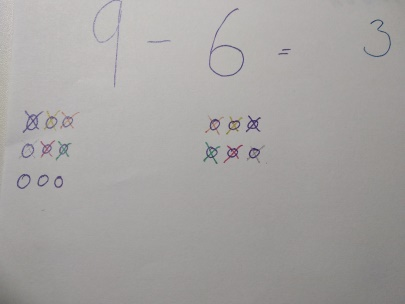 9 - 6 = 3